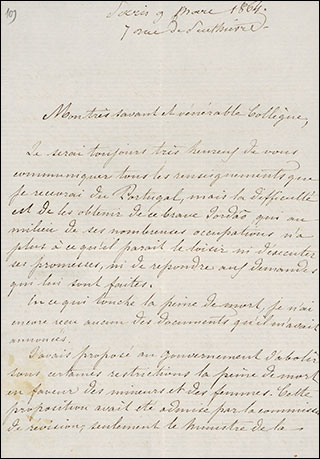 109
Paris 9 Mars 1864.
7 rue de
Mon très savant et vénérable Collègue,
Je serai toujours très heureux de vous
communiquer tous les renseignements que
je recevrai du Portugal, mais la difficulté
est de les obtenir de ce brave Jordao, qui au
milieu de ses nombreuses occupations n'a
plus à ce qu'il parait le loisir ni d'executer
ses promesses, ni de repondre aux demandes
qui lui sont faites.
En ce qui touche la peine de mort je n'ai
encore reçu aucun des documents qu'il m'avait
annoncés.
J'avais proposé au gouvernement d'abolir
sous certaines restrictions la peine de mort
en faveur des mineurs et des femmes. Cette
proposition avait été admise par la commission
de revision; seulement le Ministre de la